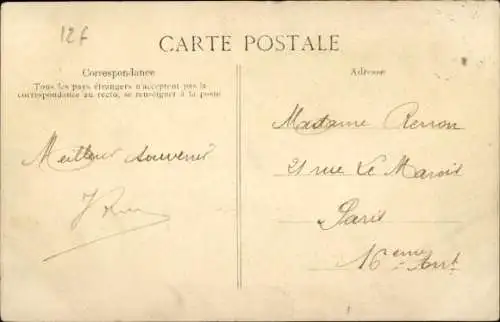 12f
CARTE POSTALE
Correspondance
Tous les pays étrangers n'acceptent pas la
correspondance au recto, se renseigner à la poste
Meilleur souvenir
Adresse
Madame Renon
21 rue Le Marois
Paris
16ème Arrt